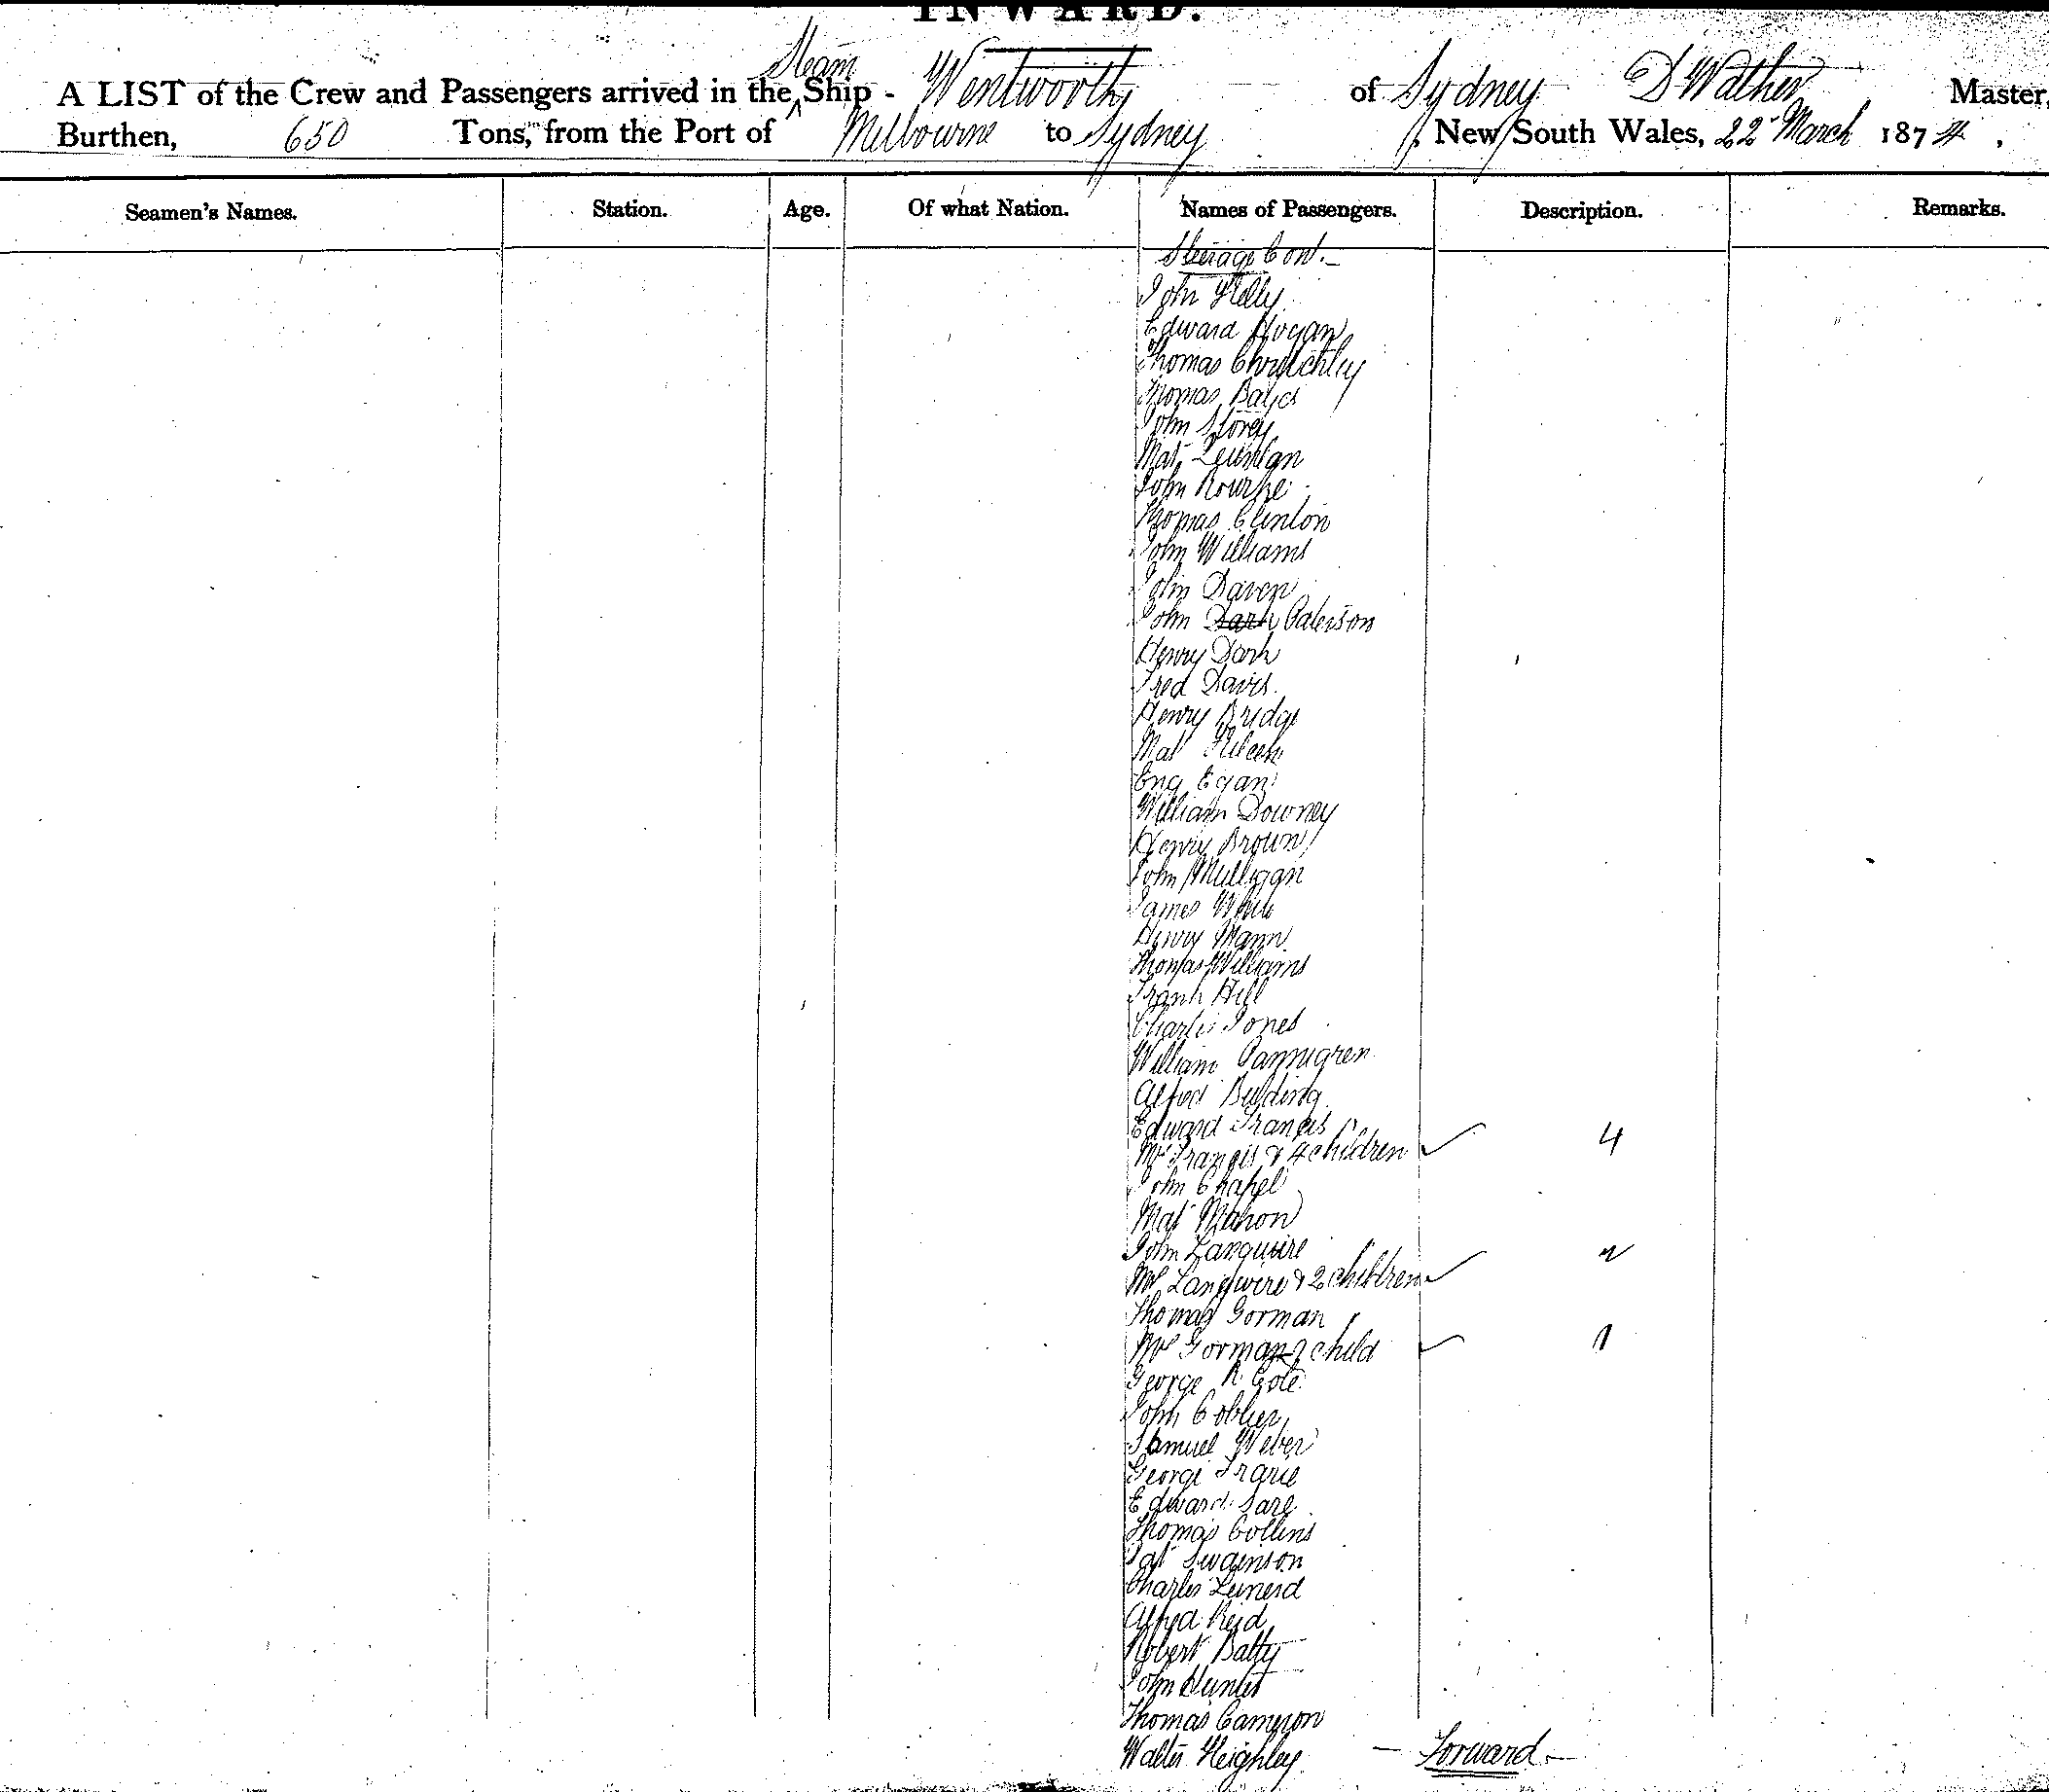 INWARD.
A LIST of the Crew and Passengers arrived in the Steam Ship - Wentworth of Sydney D Walker Master,
Burthen, 650 Tons, from the Port of Melbourne to Sydney, New South Wales, 22 March 1874,
Seamen's Names. Station. Age. Of what Nation. Names of Passengers. Description. Remarks.
Steerage Cont.
John Kelly
Edward Hogan
Thomas Chrutchley
Thomas Bayes
John Storey
Mat
John Rourke
Thomas Clinton
John Williams
John Daven
John Dark Paterson
Henry Dark
Fred Davis
Henry Bridge
Mat
Eng Egan
William Downey
Henry Brown
John Mulligan
James White
Henry Mann
Thomas Williams
Frank Hill
Charles Jones
William
Alfred Bulding
Edward Francis
Mrs Francis & 4 children 4
John Chapel
Mat Mahon
John Languire
Mrs Langwire & 2 children 2
Thomas Gorman
Mrs Gorman child 1
George R. Cole
John Cobbler
Samuel Weber
George
Edward Sare
Thomas Collins
Pat Swainson
Charles Leinerd
Alfred Reid
Robert Batty
John Hunter
Thomas Cameron
Walter Heighley - Forward -